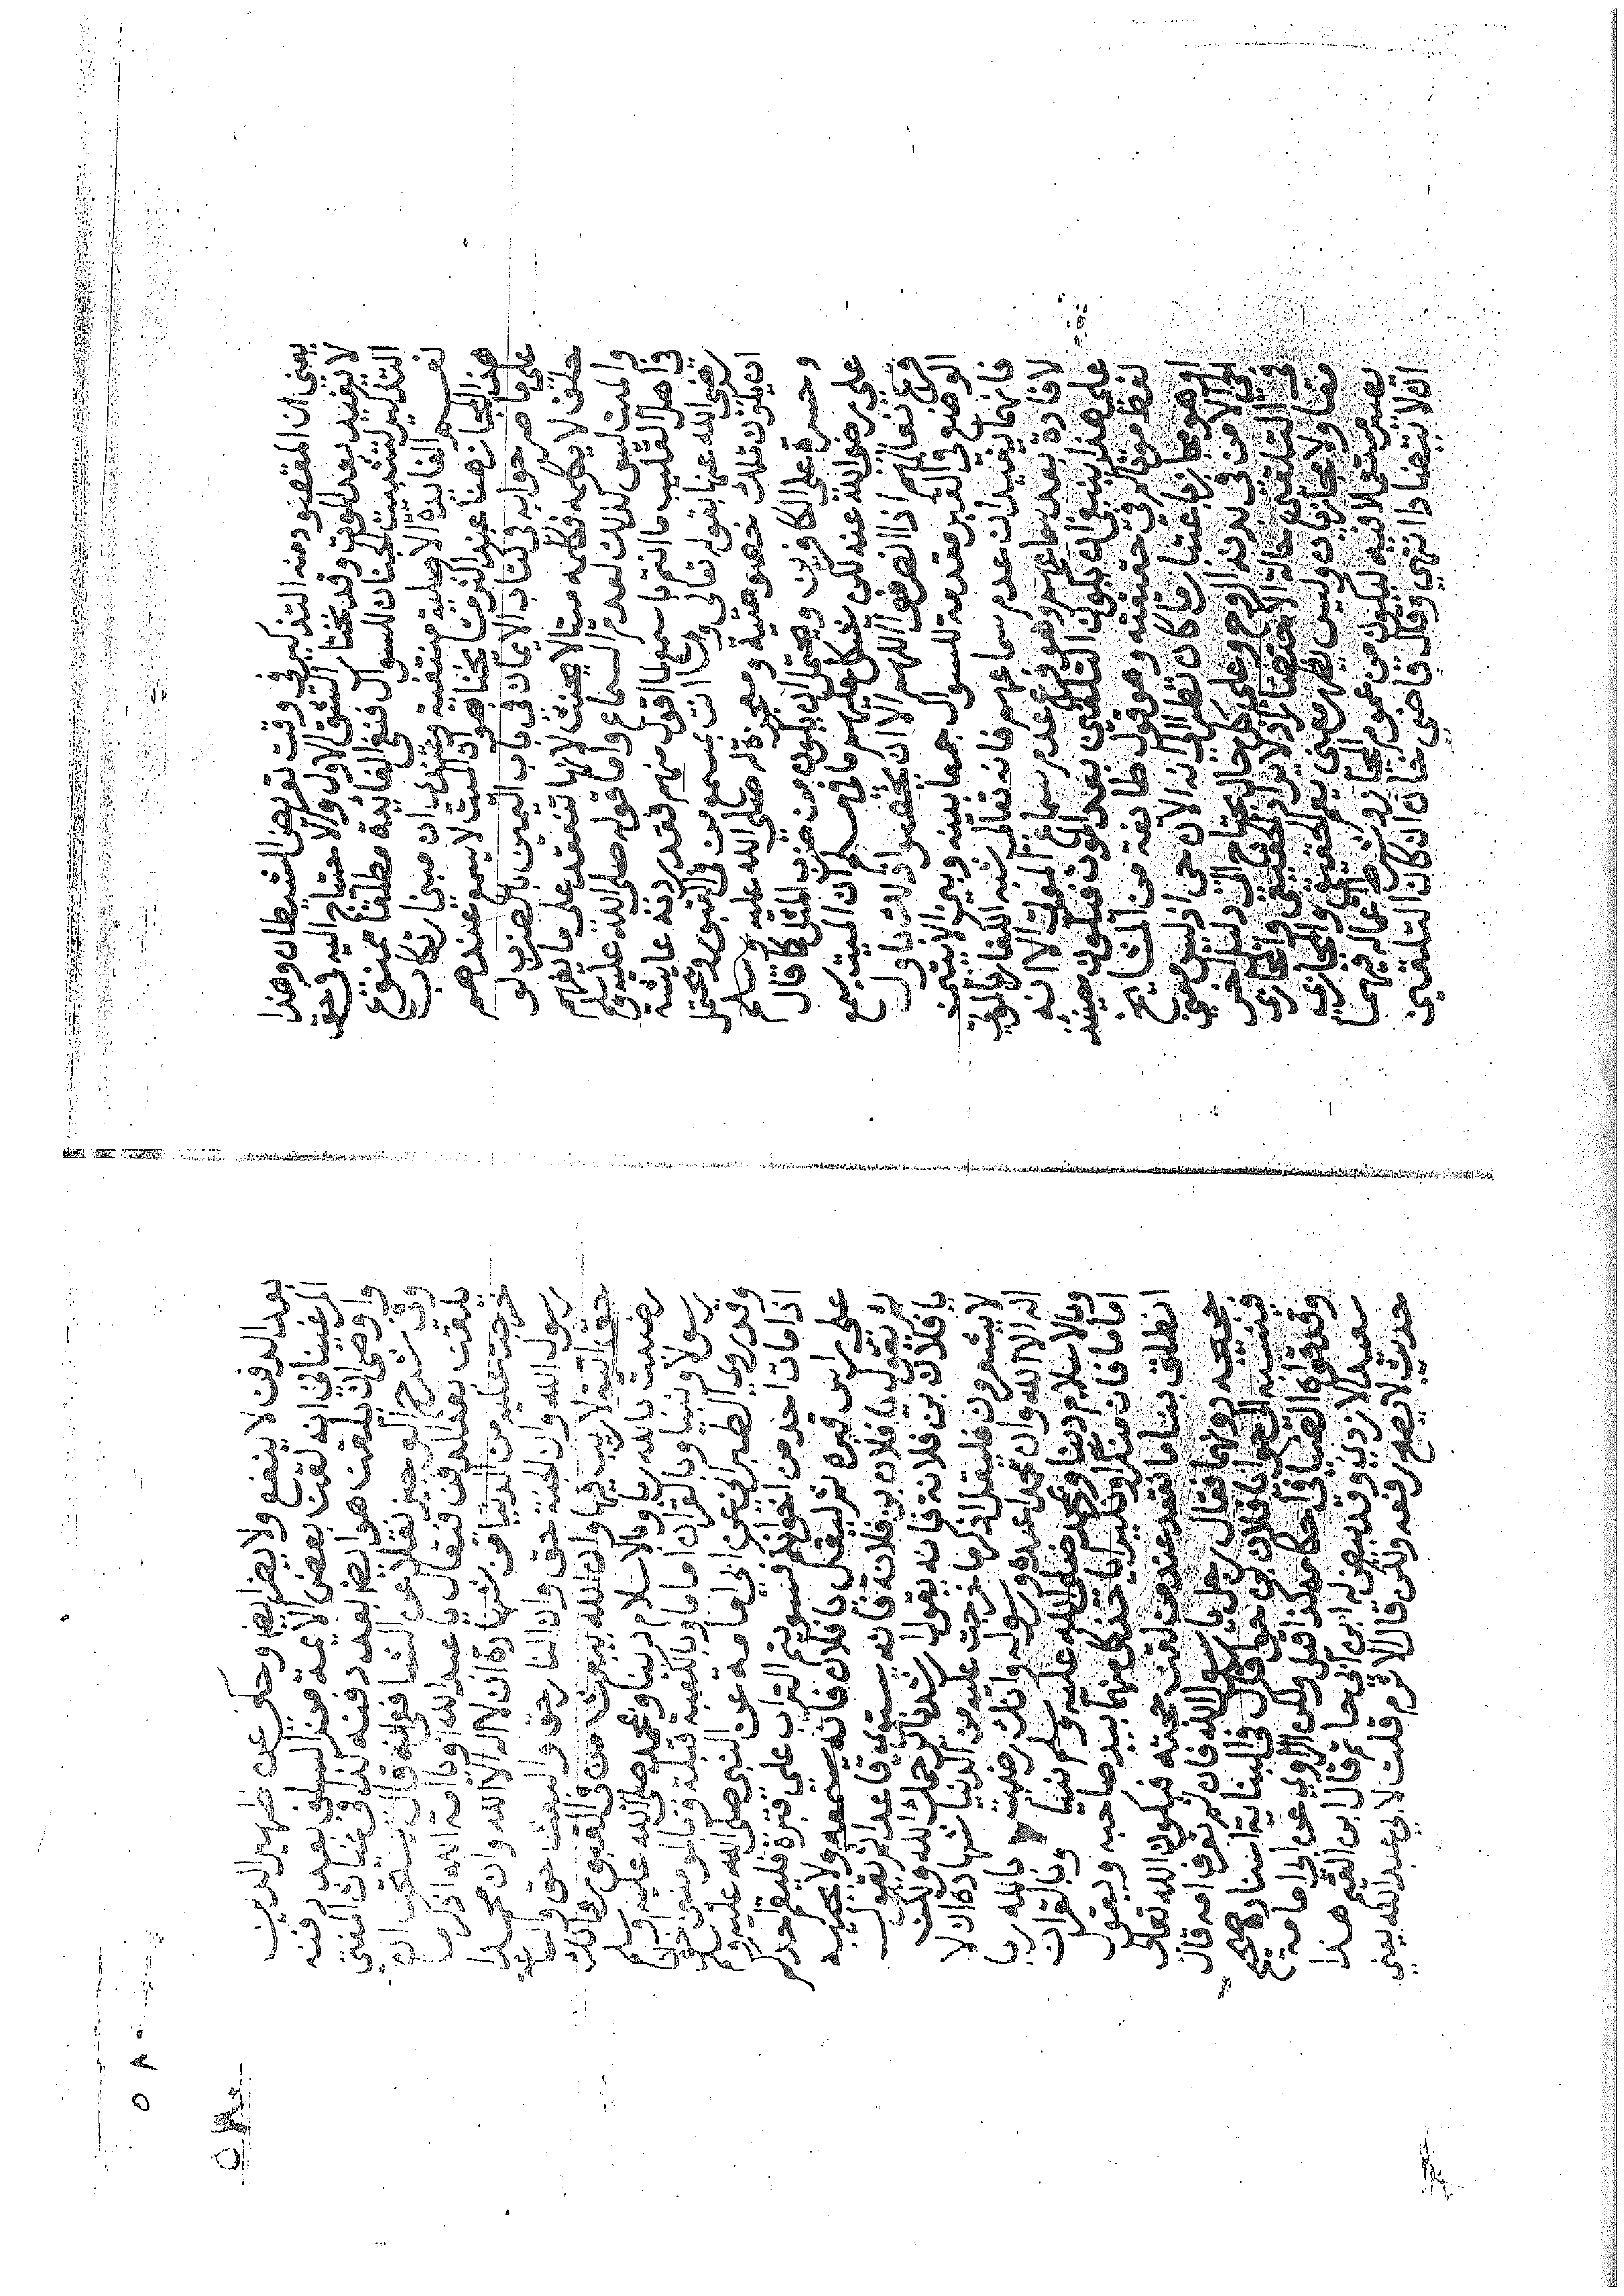 يعني ان المقصود منه التذكير في وقت تعرض الشيطان وهذا
لا يفيد بعد الموت وقد يختار الشق الاول والاحتياج اليه في حق
التذكير لتثبيت الجنان للسوال فنفي الفائدة مطلقا ممنوع
نعم الفايدة الاصلية منتفية وعندي ان مبنى ارتكاب
هذا المجاز هنا عند اكثر مشايخنا هو ان الميت لا يسمع عندهم
على ما صرحوا به في كتاب الايمان في باب اليمين بالضرب لو
حلف لا يكلمه فكلمه ميتا لا يحنث لانها تنعقد على ما يفهم
والميت ليس كذلك لعدم السماع واما قوله صلى الله عليه وسلم
في اهل القليب ما انتم باسمع لما اقول منهم فقد ردته عايشه
رضي الله عنها بقوله تعالى وما انت بمسمع من في القبور ويحتمل
ان يكون تلك خصوصية ومعجزة له صلى الله عليه وسلم
وحسرة على الكافرين ويحتمل ان يكون من ضرب المثل كما قال
علي رضي الله عنه لكن يشكل عليهم ما في مسلم ان الميت يسمع
قرع نعالهم اذا انصرفوا اللهم الا ان يخصوا ذلك باول
الوضع في القبر مقدمة للسوال جمعا بينه وبين الايتين
فانهما يفيدان عدم سماعهم فانه تعالى شبه الكفار بالموتى
لافادة بعد سماعهم وهو فرع عدم سماع الموتى الا انه
على هذا ينبغي ان يكون التلقين بعد الموت فيكون حينئذ
لفظ موتاكم في حقيقته وهو قول طائفة من المشايخ
او هو مجاز باعتبار ما كان نظرا الى انه الان حي اذ ليس معنى
الحي الا من في بدنه الروح وعلى كل حال يحتاج الى دليل اخر
في التلقين حالة الاحتضار اذ لا يراد الحقيقي والمجازي
معا ولا مجازيان وليس يظهر معنى يعم الحقيقي والمجازي
يعتبر مستعملا فيه ليكون من عموم المجاز وشرط اعماله فيهما
ان لا يتضادا انتهى وقال قاضي خان ان كان التلقين
بعد الدفن لا ينفع ولا يضر ايضا وحكى عن ظهير الدين
المرغيناني انه لقن بعض الائمة من السلف بعد دفنه
واوصى ان يلقن هو ايضا بعد دفنه كذا في غياث المفتي
وفي شرح الوجيز نقلا عن الشافعي انه قال يستحب ان
يلقن بعد الدفن فيقال يا عبد الله او يا امة الله اذكر ما
خرجت عليه من الدنيا من شهادة ان لا اله الا الله وان محمدا
رسول الله وان الجنة حق وان النار حق والبعث حق والساعة
حق اتية لا ريب فيها وان الله يبعث من في القبور وانك
رضيت بالله ربا وبالاسلام دينا وبمحمد صلى الله عليه وسلم
رسولا ونبيا وبالقران اماما وبالكعبه قبلة وبالمومنين اخوانا
وقد روى الطبراني عن ابي امامه عن النبي صلى الله عليه وسلم
اذا مات احد من اخوانكم فسويتم التراب على قبره فليقم احدكم
على راس قبره ثم ليقل يا فلان فانه يسمعه ولا يجيبه
ثم يقول يا فلان بن فلانة فانه يستوي قاعدا ثم يقول
يا فلان بن فلانة فانه يقول ارشدنا يرحمك الله ولكن
لا يشعرون فليقل اذكر ما خرجت عليه من الدنيا شهادة ان لا
اله الا الله وان محمدا عبده ورسوله وانك رضيت بالله ربا
وبالاسلام دينا وبمحمد صلى الله عليه وسلم نبيا وبالقران
اماما فان منكرا ونكيرا ياخذ كل منهما بيد صاحبه ويقول
انطلق بنا ما نقعد عند من لقن حجته فيكون الله تعالى
حجيجه دونهما فقال رجل يا رسول الله فان لم تعرف امه قال
فينسبه الى حوا يا فلان بن حوا قال في البناية اسناده صحيح
وقد قواه الضيا في احكامه كذا قيل ولكن الراوي عن ابي امامة
سعيد الازدي وقد بيض له ابن ابي حاتم قال ابن القيم هذا
حديث لا يصح رفعه ولكن قال الاثرم قلت لابي عبد الله يعني
٥٨